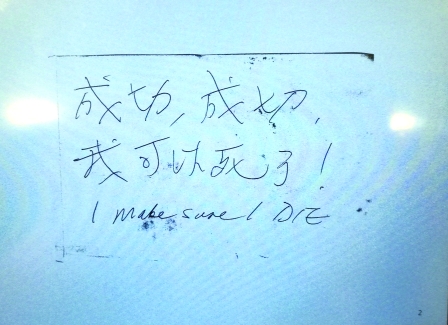 成功,成功,
我可以死了!
I make sure I DIE
2